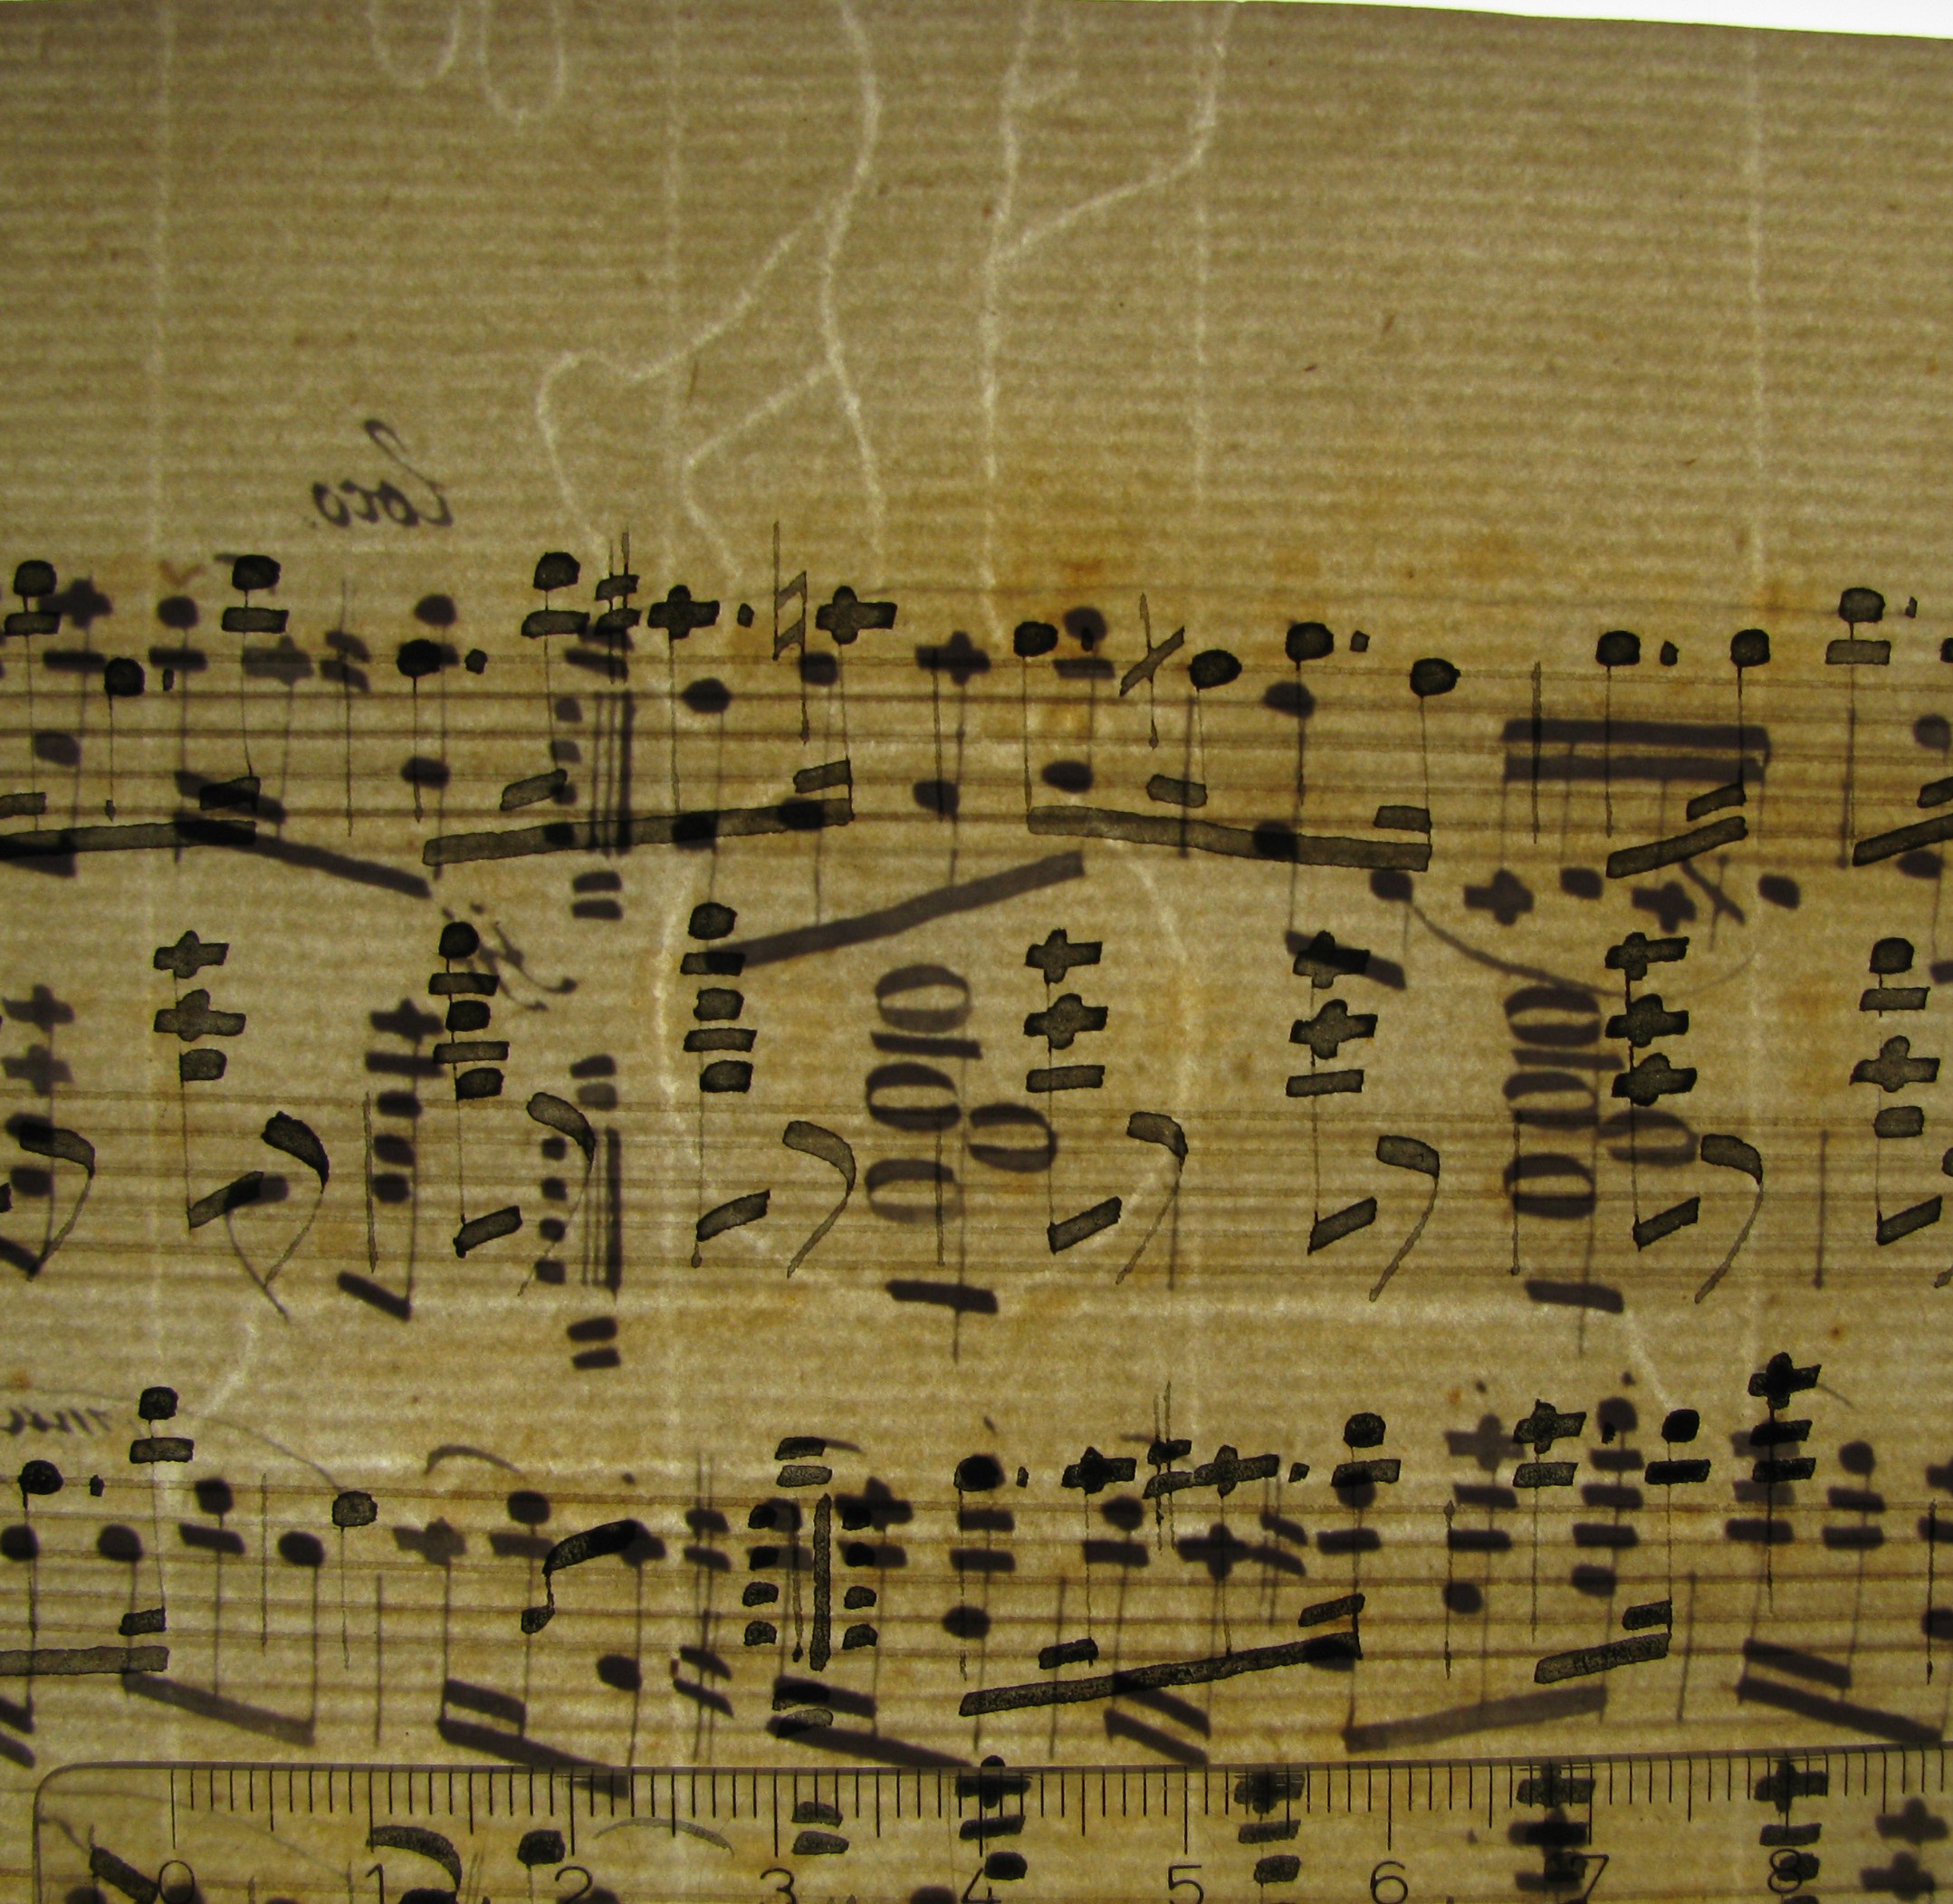 Loco
0 1 2 3 4 5 6 7 8